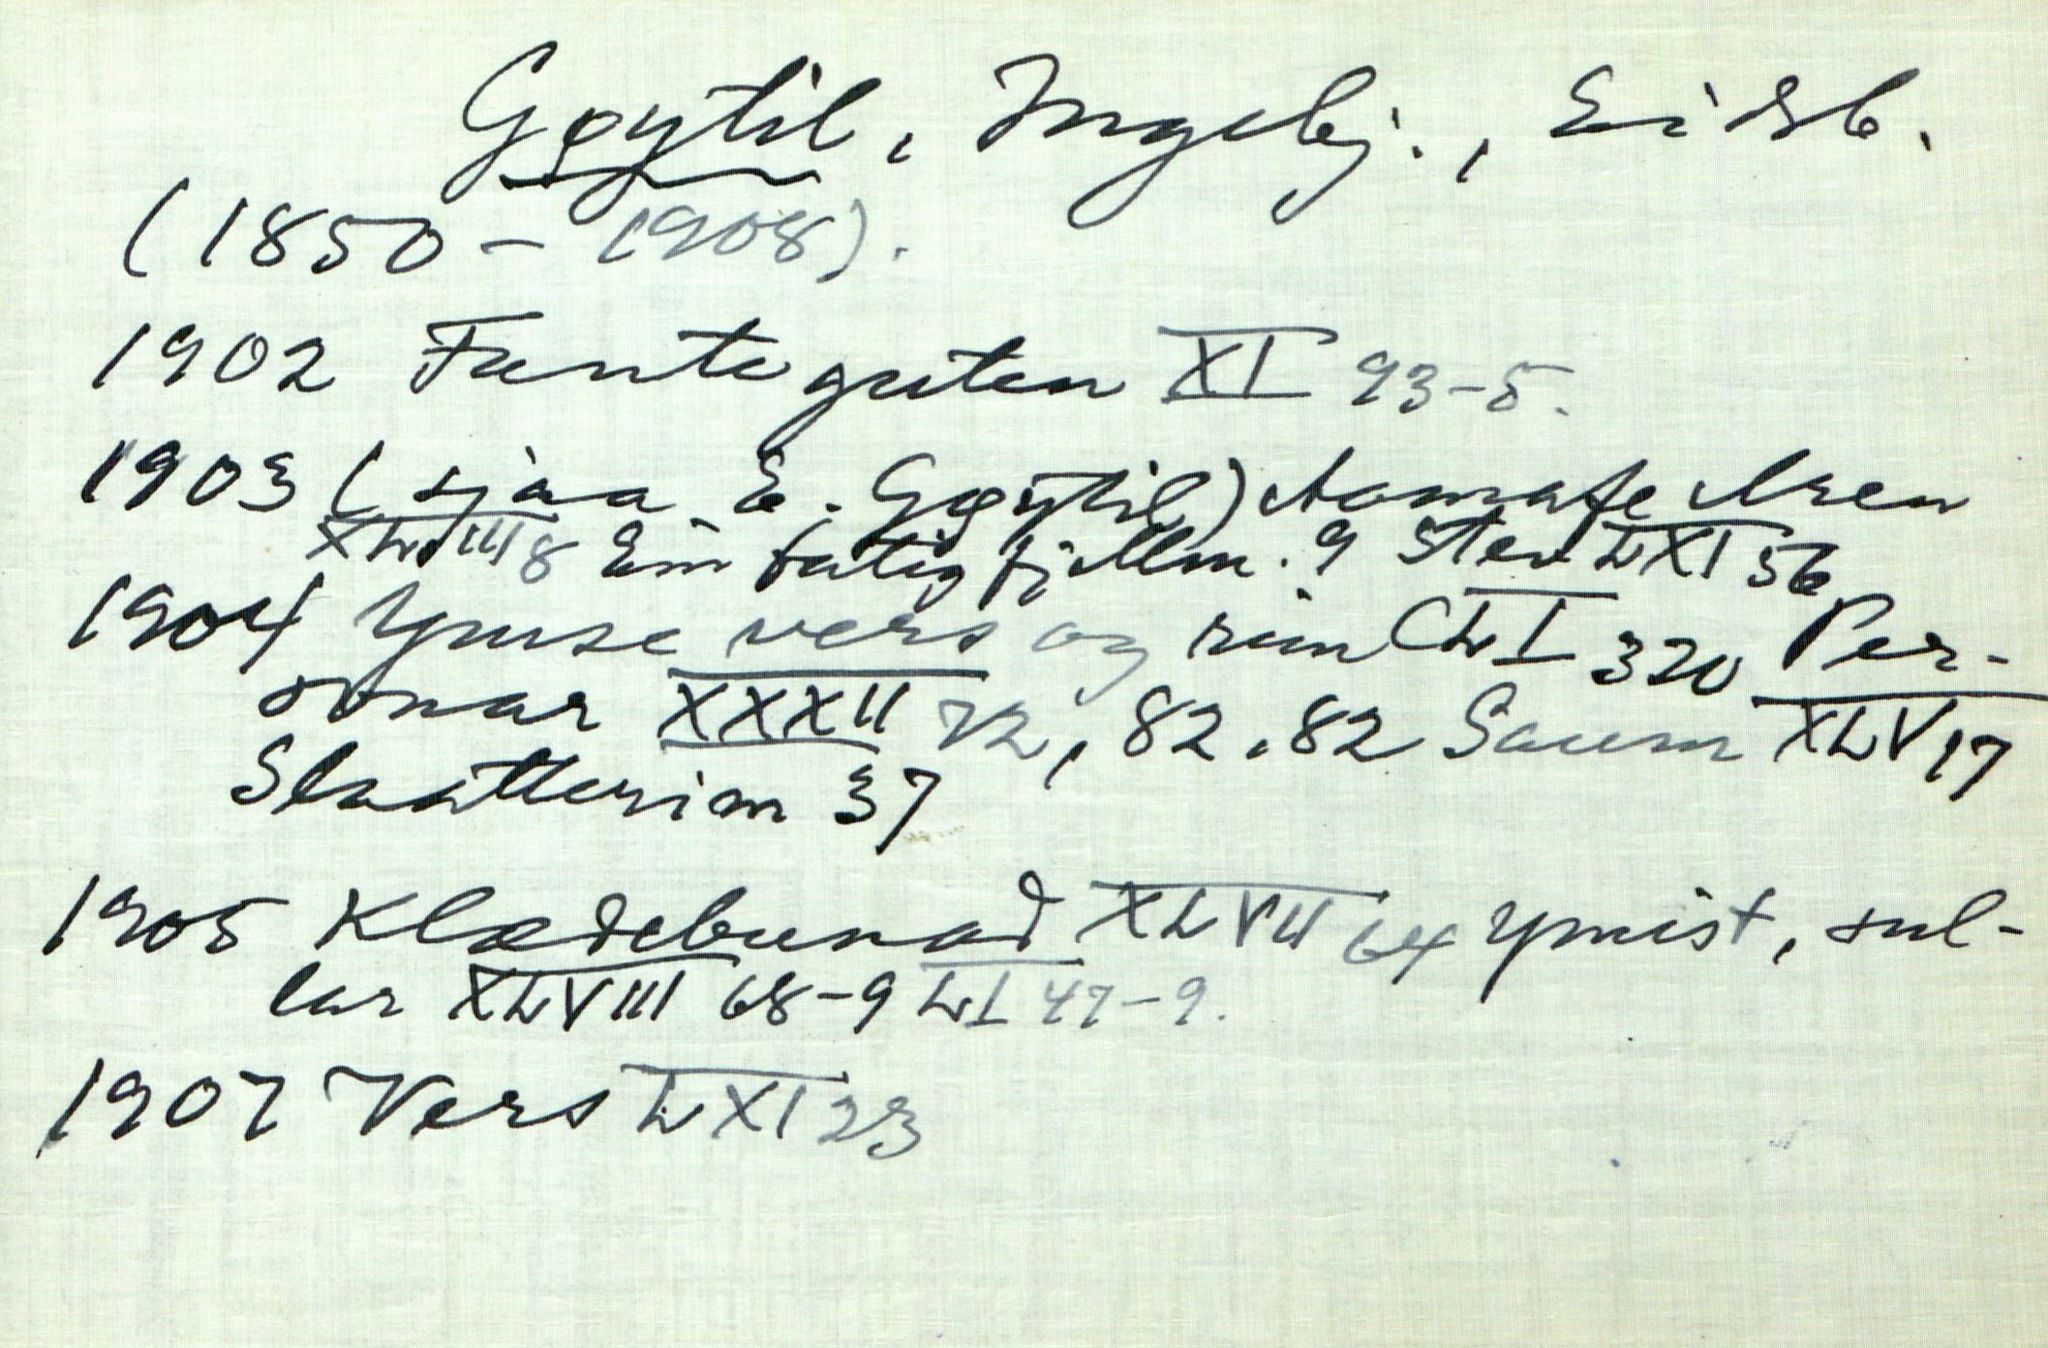 Gøytil, Ingebj., Eidsb.
(1850 - 1908).
1902 Fanteguten XI 93-5.
1903 (sjaa E. Gøytil)
XLVIII 8 Ein fatig fjellm. 9 Stev LXI 56
1904 Ymse vers og rim LI 320 Per-
sonar XXXII 72, 82, 82 Saum XLV 17
Slaatterim 37
1905 Klædebunad XLVII 64 Ymist, sul-
lar XLVIII 68-9 LI 47-9.
1907 Vers LXI 23